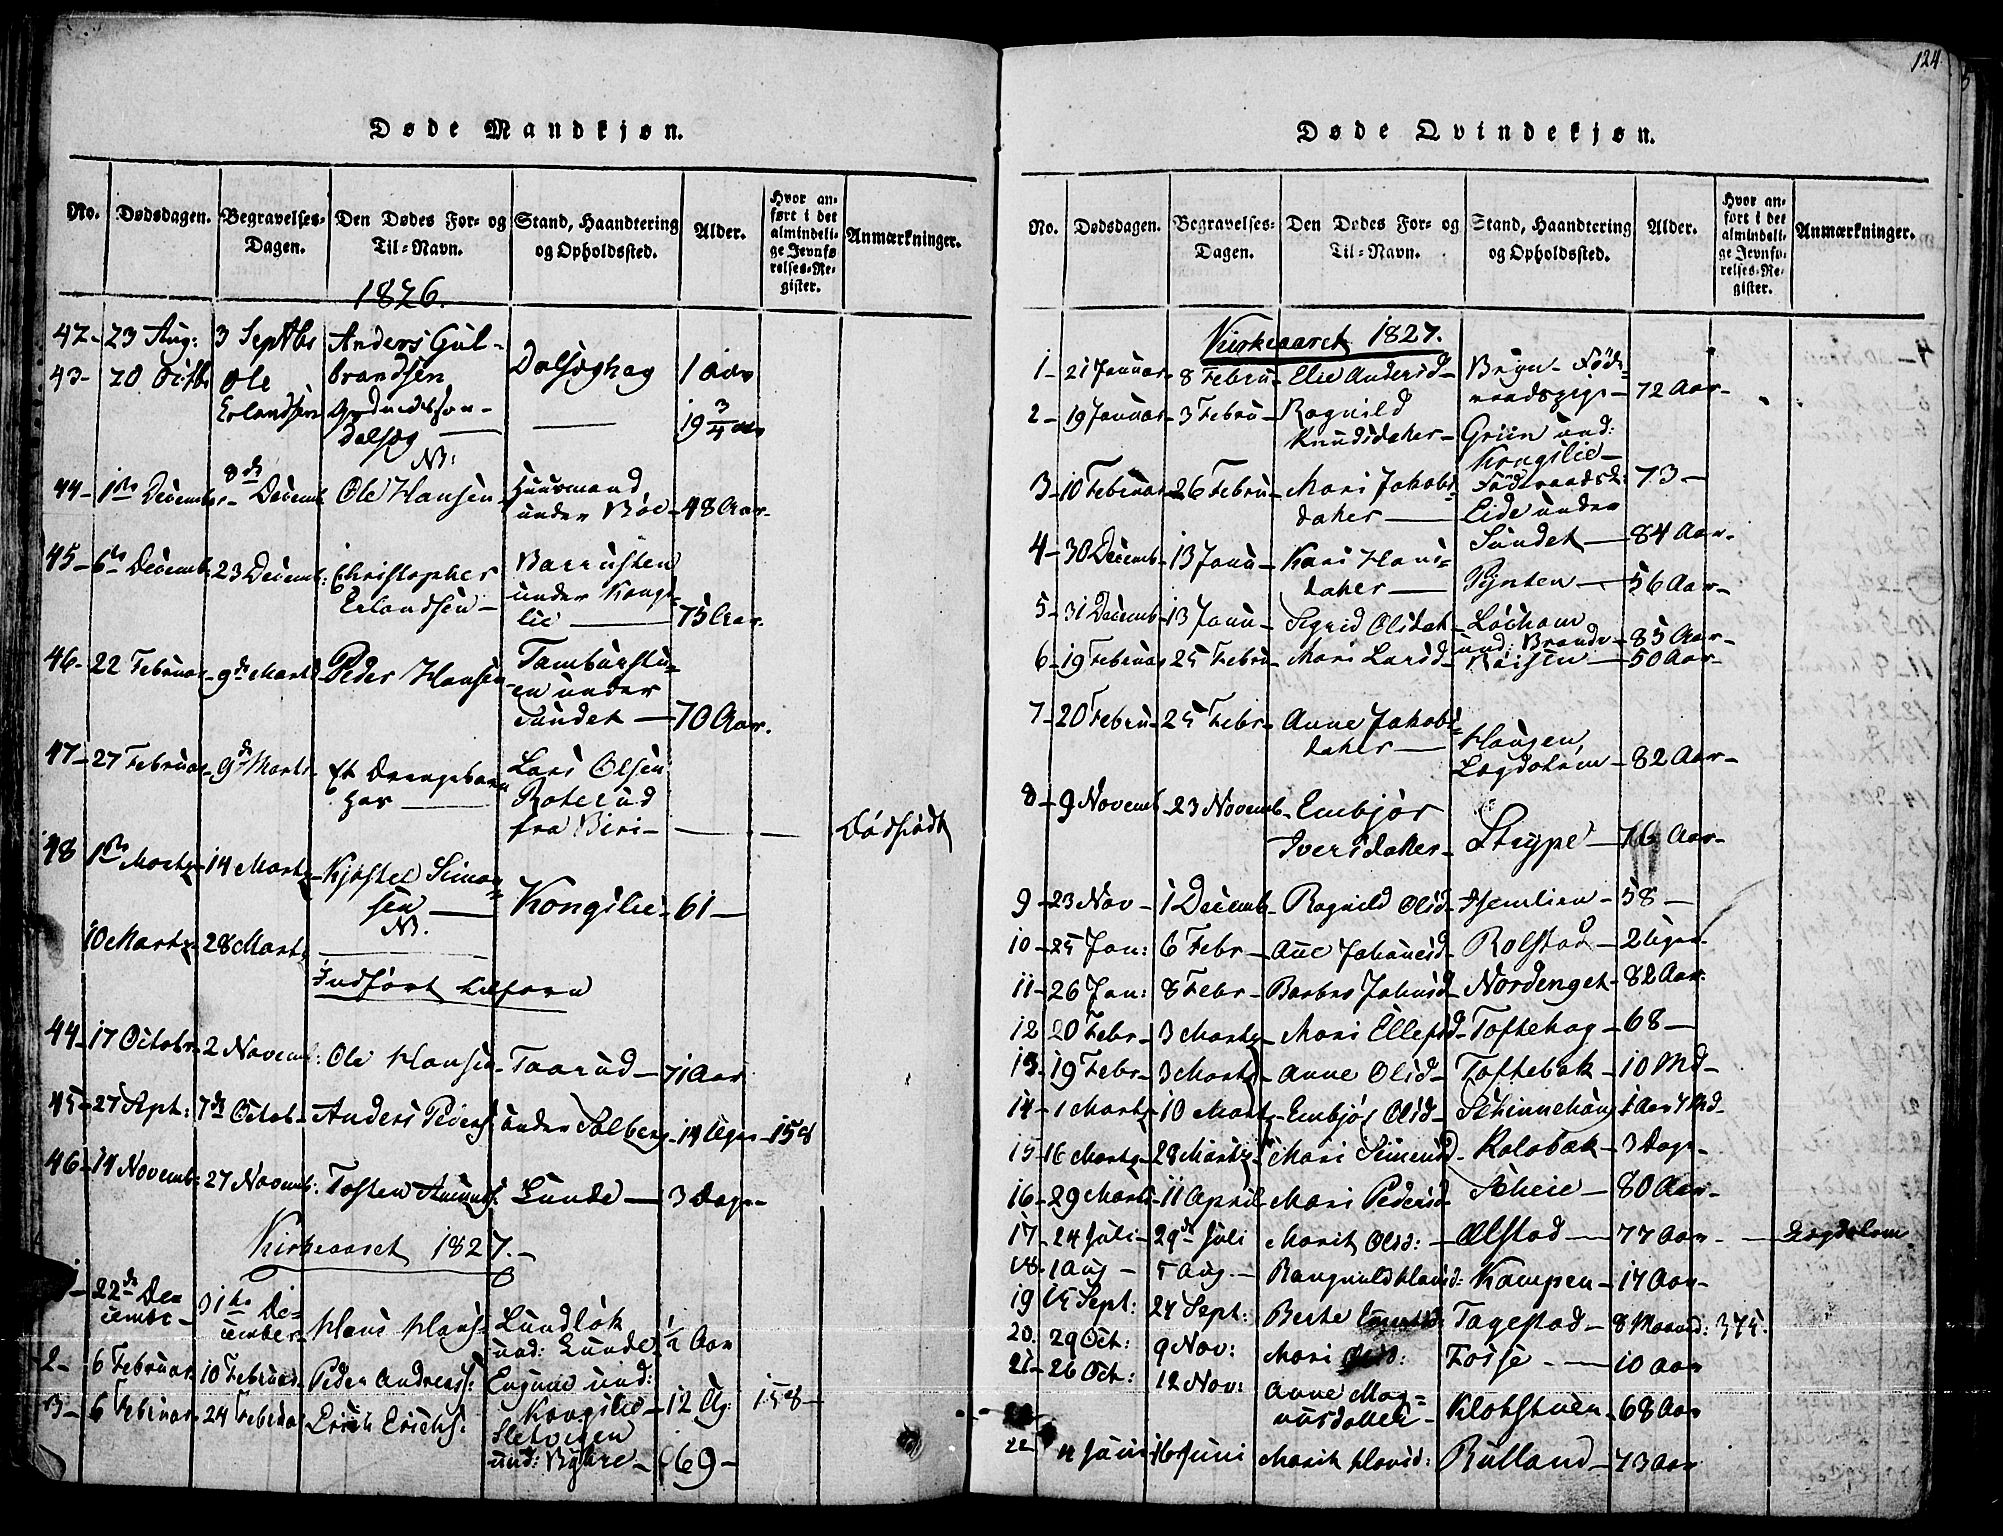 124
Døde Mandkjøn.
No. Dødsdagen. Begravelses-Dagen. Den Dødes For- og Til-Navn. Stand, Haandtering og Opholdssted. Alder. Hvor anført i det almindelige Jevnførelses-Register. Anmærkninger.
1826.
42- 23 Aug: 3 Septbr Anders Gul-
brandsen Dalseghag 1 aar
43- 20 Octbr Ole
Erlandsen
Dalseg 19 3/4 aar
NB:
44- 1ste Decembr- 8de Decemb Ole Hansen Huusmand
under Böe- 48 Aar-
45- 6te Decemb: 23 Decemb: Christopher
Erlandsen- under Kongs-
lie 75 Aar.
46- 22 Februar 9de Marts Peder Hansen Tamburstu-
en under
Sundet 70 Aar.
47- 27 Februar- 9de Marts- Et Drengebarn Lars Olsen
Roterud
fra Biri- Dödfödt
48 1ste Martz- 14 Martz- Kjostel Simon-
sen Kongslie- 61-
NB.
10 Martz- 28 Martz
Indfört tilforn
44- 17 Octobr- 2 Novemb: Ole Hansen- Taarud- 71 Aar
45- 27 Spt: 7de Octob- Anders Peders: under Solberg- 14 Uger- 158
46- 14 Novemb: 27 Novemb: Tosten Amunds: Lunde- 3 Dage-
Kirkeaaret 1827.-
1- 22de De-
cembr- 31te De-
cember- Hans Hans: Lundløk
und: Lunde 1/2 Aar
2- 6 Februar 10 Februar- Peder Andreass: Engene und:
Kongslie- 12 Ug: 158-
3- 6 Februar- 24 Februar Erich Erichs: Sletvigen
und: Bybre- 69-
Døde Qvindekjøn.
No. Dødsdagen. Begravelses-Dagen. Den Dødes For- og Til-Navn. Stand, Haandtering og Opholdssted. Alder. Hvor anført i det almindelige Jevnførelses-Register. Anmærkninger.
Kirkeaaret 1827.
1- 21 Januar- 8 Febru- Elie Andersd- Bryn- Föde-
raadspige- 72 Aar-
2- 19 Januar- 3 Febru- Ragnild
Knudsdater- Griin und:
Kongslie- 73-
3- 10 Februar- 26 Febru- Mari Jakobs-
dater Föderaadsk:
Eide under
Sundet- 84 Aar-
4- 30 Decemb- 13 Janu- Kari Hans-
dater Pynten- 56 Aar-
5- 31 Decemb- 13 Janu- Sigrid Olsdat-
und: Brande- 85 Aar-
6- 19 Februar 25 Febru- Mari Larsd- Röisen- 50 Aar-
7- 20 Febru- 25 Febr- Anne Jakobs-
dater Haugen,
Lægdslem- 82 Aar-
8- 9 Novemb- 23 Novemb- Embjör
Iversdater- Strype- 76 Aar-
9- 23 Nov- 1 Decemb- Ragnild Olsd- Hjemlien- 58-
10- 25 Jan: 6 Febr- Ane Johanesd- Rolstad- 2 Uger-
11- 26 Jan: 8 Febr- Barbro Johnsd- Nordenget- 82 Aar:
12 20 Febr- 3 Martz- Mari Ellefsd- Toftehag- 68-
13- 19 Febr- 3 Martz- Anne Olsd- Toftebak- 10 Md-
14- 1 Martz- 10 Martz- Embjör Olsd- Schinnehaug 1 Aar 7 Md-
15- 16 Martz- 28 Martz- Mari Simensd- Kalobak- 3 Dage-
16- 29 Marts- 11 April- Mari Pedersd- Scheie- 80 Aar-
17- 24 Juli- 29de Juli Marit Olsd: Ælstad- 77 Aar- Lægdslem
18- 1 Aug- 5 Aug- Rangnild Hansd: Kampen- 17 Aar-
19 15 Sept: 24 Sept: Berte Tagestad- 8 Maaned: 375.
20. 29 Oct: 9 Nov: Mari Olsd: Fosse- 10 aar
21- 26 Oct: 12 Nov: Anne Mag-
nusdatter- Klokstuen- 68 Aar
22 4 Juni 16 Juni Marit Havid: Rulland- 73 Aar